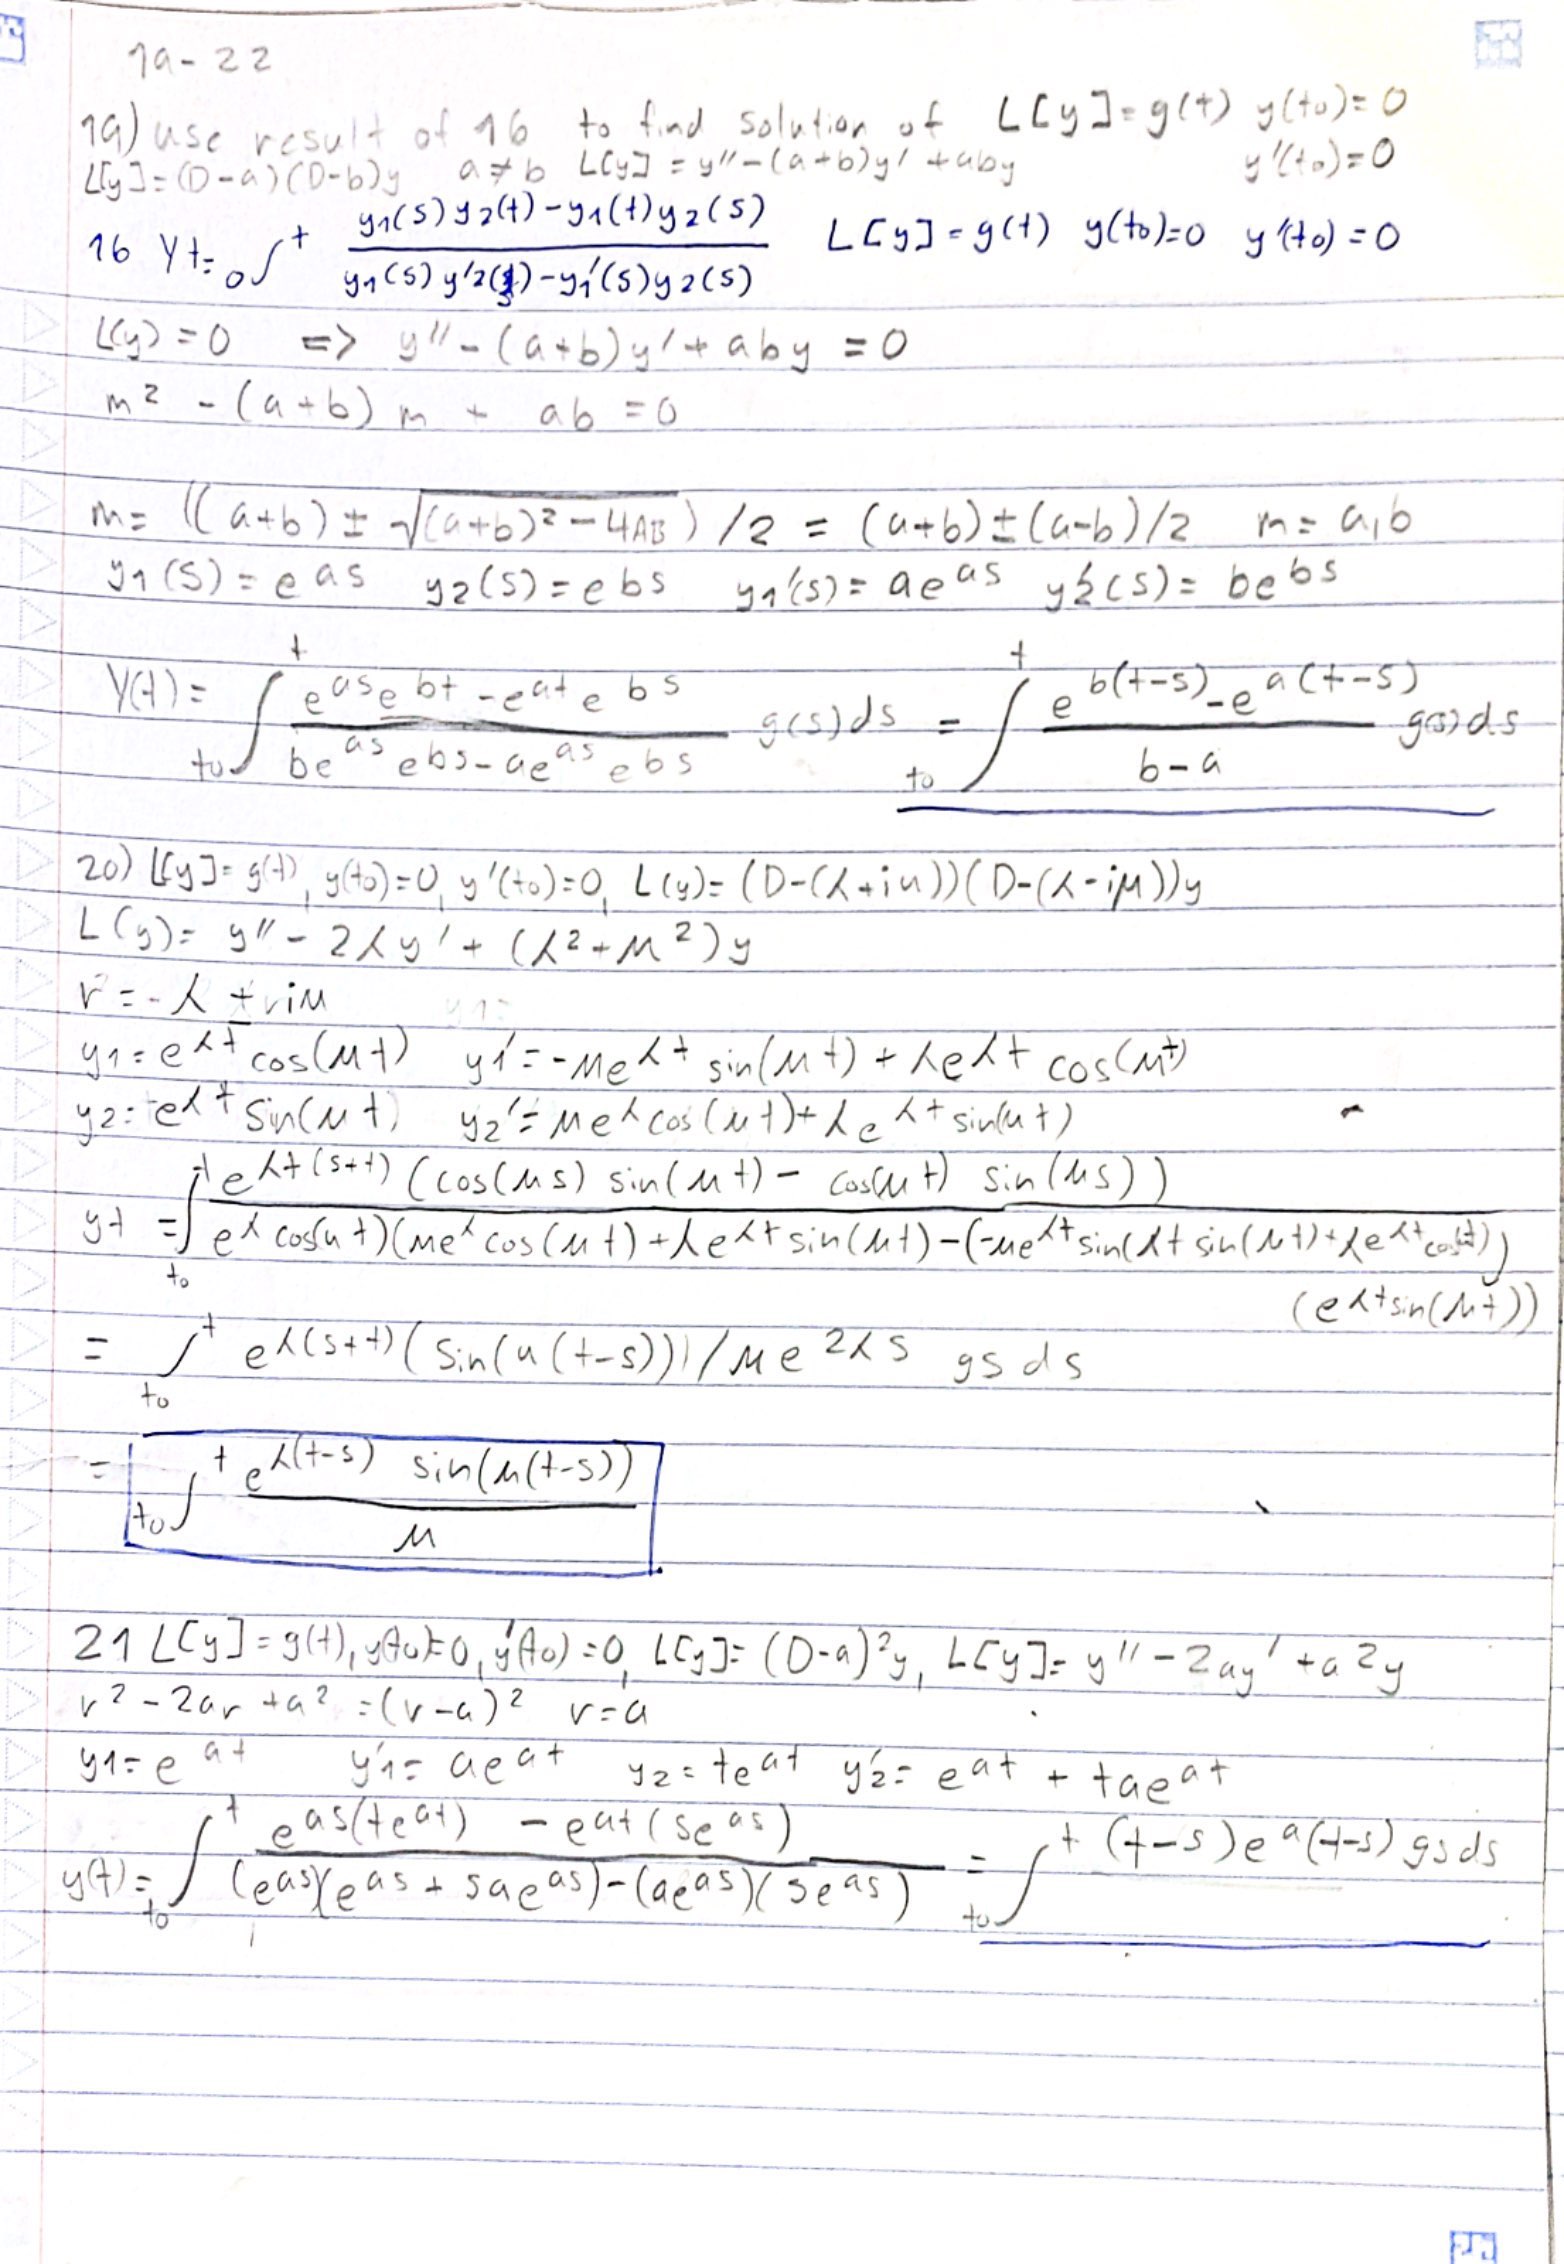 19-22
19) use result of 16 to find solution of L[y]=g(t) y(t0)=0
L[y]=(D-a)(D-b)y a≠b L[y]=y''-(a+b)y'+aby y'(t0)=0
16 Yt= 0∫^t (y1(s)y2(t)-y1(t)y2(s))/(y1(s)y'2(s)-y1'(s)y2(s)) L[y]=g(t) y(t0)=0 y'(t0)=0
L(y)=0 => y''-(a+b)y'+aby=0
m² -(a+b)m + ab=0
m= ((a+b)±√((a+b)²-4AB))/2 = (a+b)±(a-b)/2 m=a,b
y1(s)=e^as y2(s)=e^bs y1'(s)=ae^as y2'(s)=be^bs
Y(t)= ∫_t0^t (e^as e^bt - e^at e^bs)/(be^as e^bs - ae^as e^bs) g(s)ds = ∫_t0^t (e^b(t-s) - e^a(t-s))/(b-a) g(s)ds
20) L[y]=g(t), y(t0)=0, y'(t0)=0, L(y)=(D-(λ+iμ))(D-(λ-iμ))y
L(y)= y''-2λy'+(λ²+μ²)y
y1=e^λt cos(μt) y1'=-μe^λt sin(μt)+λe^λt cos(μt)
y2=e^λt sin(μt) y2'=μe^λ cos(μt)+λe^λt sin(μt)
yt = ∫_t0^t e^λt(s+t) (cos(μs) sin(μt) - cos(μt) sin(μs)) / e^λ cos(μt)(μe^λ cos(μt)+λe^λt sin(μt)-(-μe^λt sin(λt sin(μt)+λe^λt cos(t))
(e^λt sin(μt))
= ∫_t0^t e^λ(s+t)(sin(μ(t-s)))/μe^2λs gs ds
= ∫_t0^t e^λ(t-s) sin(μ(t-s))/μ
21 L[y]=g(t), y(t0)=0, y'(t0)=0, L[y]=(D-a)²y, L[y]=y''-2ay'+a²y
r²-2ar+a²=(r-a)² r=a
y1=e^at y'1=ae^at y2=te^at y'2=e^at+tae^at
y(t)= ∫_t0^t (e^as(te^at) - e^at(se^as))/((e^as)(e^as+sae^as)-(ae^as)(se^as)) = ∫_t0^t (t-s)e^a(t-s) gs ds